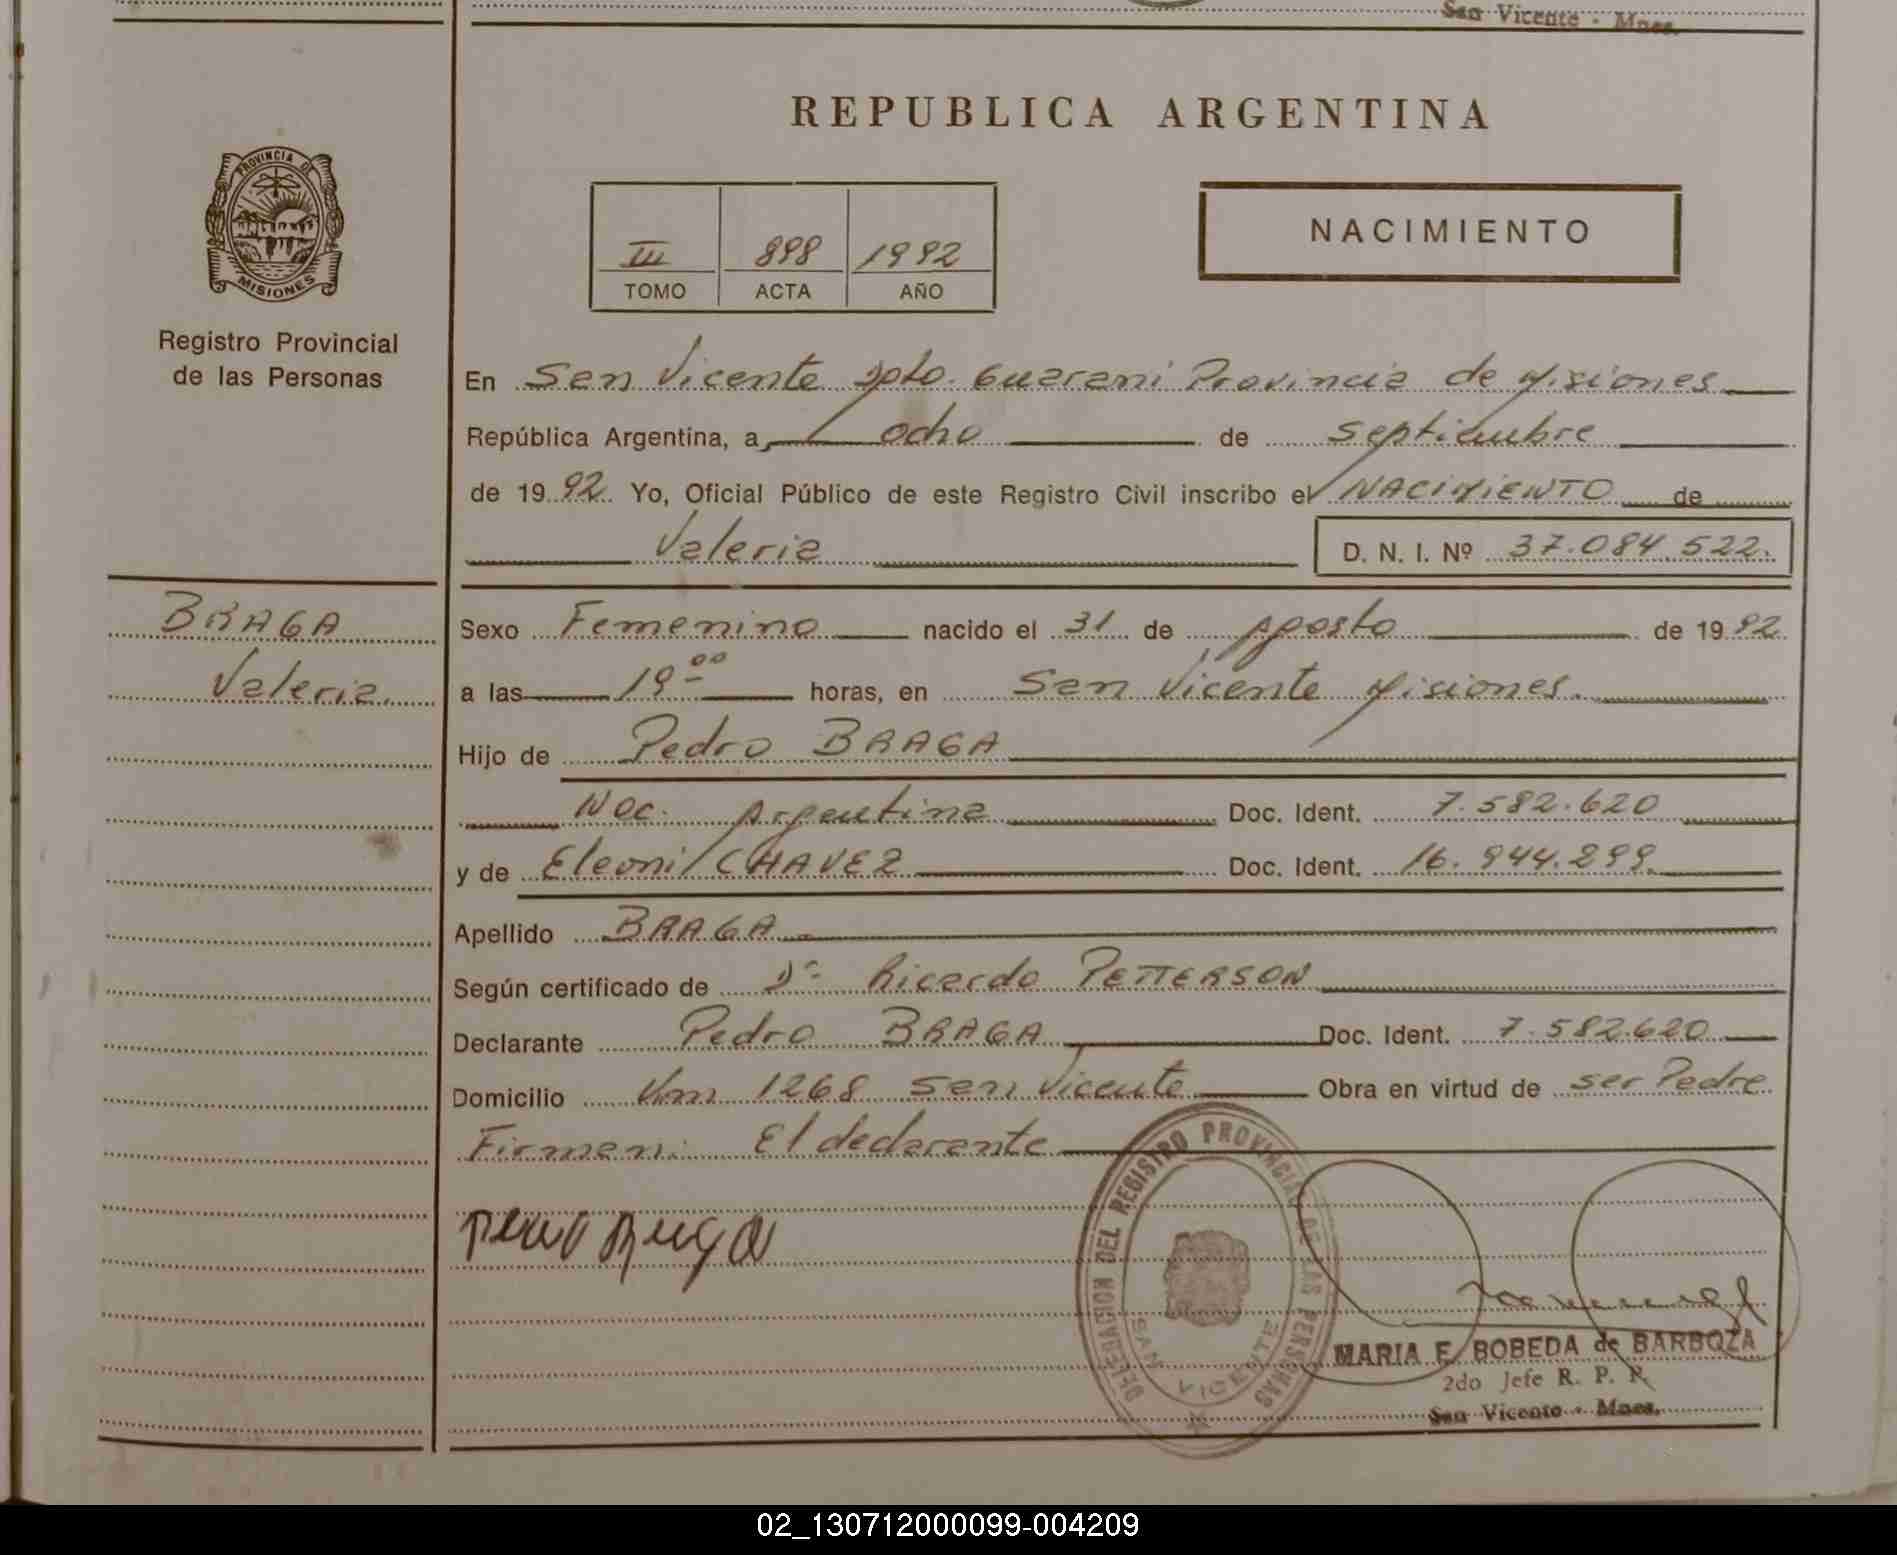 San Vicente - Mnes.
REPUBLICA ARGENTINA
PROVINCIA DE
MISIONES
Registro Provincial
de las Personas
III 898 1992
TOMO ACTA AÑO
NACIMIENTO
En San Vicente Dpto. Guarani Provincia de Misiones
República Argentina, a ocho de septiembre
de 1992 Yo, Oficial Público de este Registro Civil inscribo el NACIMIENTO de
Valeria D. N. I. Nº 37.084.522.
BRAGA
Valeria.
Sexo Femenino nacido el 31 de Agosto de 1992
a las 19 00 horas, en San Vicente Misiones.
Hijo de Pedro BRAGA
Nac. Argentina Doc. Ident. 7.582.620
y de Eleoni CHAVEZ Doc. Ident. 16.944.299.
Apellido BRAGA
Según certificado de Dr Ricardo PETTERSON
Declarante Pedro BRAGA Doc. Ident. 7.582.620
Domicilio Km 1268 San Vicente Obra en virtud de ser Padre
Firman: El declarante
DELEGACION DEL REGISTRO PROVINCIAL DE LAS PERSONAS
SAN VICENTE
MARIA E. BOBEDA de BARBOZA
2do Jefe R. P. P.
San Vicente - Mnes.
02_130712000099-004209